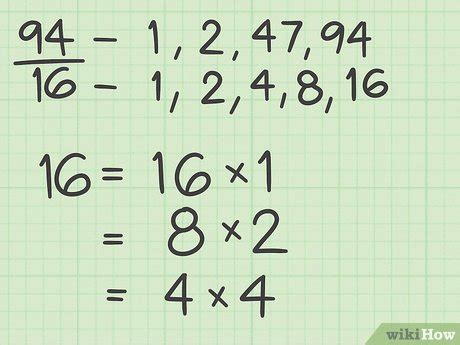 94 – 1, 2, 47, 94
16 – 1, 2, 4, 8, 16
16 = 16 × 1
= 8 × 2
= 4 × 4
wikiHow